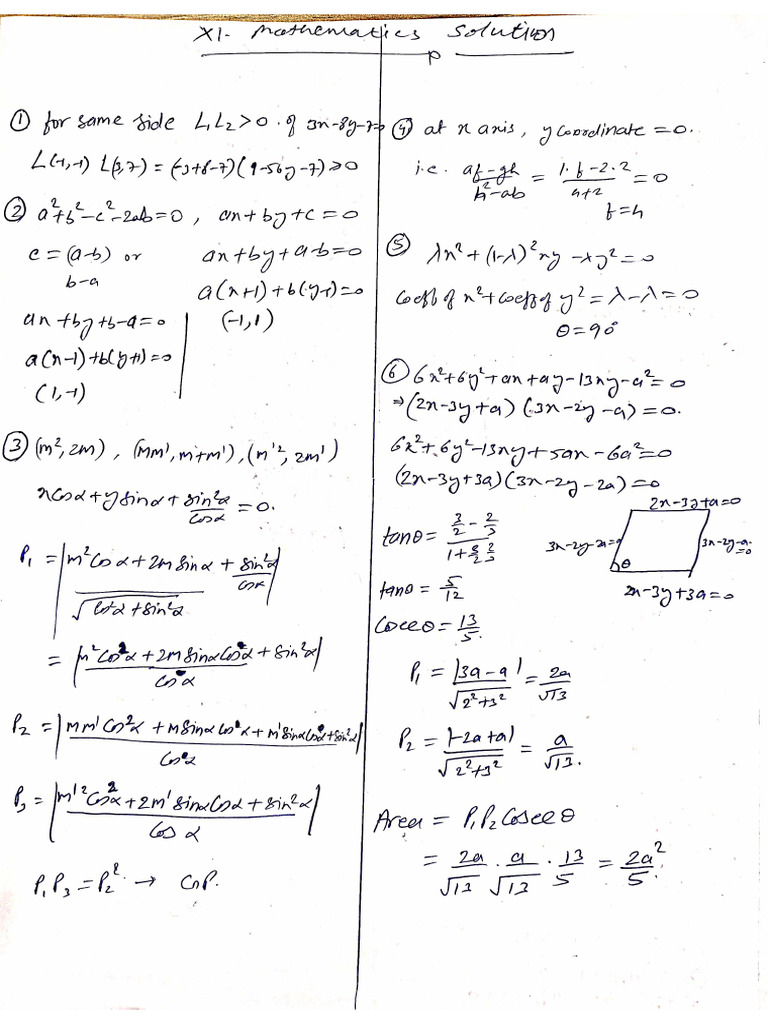 XI- Mathematics Solution
① for same side L₁L₂>0 of 3x-8y-7=0
L(-1,-1) L(3,7) = (-3+8-7)(9-56y-7)>0
② a²+b²-c²-2ab=0, ax+by+c=0
c = (a-b) or b-a
ax+by+a-b=0
a(x+1)+b(y-1)=0
(-1,1)
ax+by+b-a=0
a(x-1)+b(y+1)=0
(1,-1)
③ (m²,2m), (mm',m+m'), (m'²,2m')
xcosα+ysinα+sin²α/cosα=0.
P₁ = |(m²cosα+2msinα+sin²α/cosα)/√(cos²α+sin²α)|
= |(m²cos²α+2msinαcosα+sin²α)/cosα|
P₂ = |(mm'cos²α+msinαcosα+m'sinαcosα+sin²α)/cosα|
P₃ = |(m'²cos²α+2m'sinαcosα+sin²α)/cosα|
P₁P₃=P₂² → GP.
④ at x axis, y coordinate=0.
i.e. (af-gh)/(h²-ab) = (1·f-2·2)/(4+2) = 0
f=4
⑤ λx²+(1-λ)²xy-λy²=0
coeff of x²+coeff of y²=λ-λ=0
θ=90°
⑥ 6x²+6y²+ax+ay-13xy-a²=0
⇒(2x-3y+a)(3x-2y-a)=0.
6x²+6y²-13xy+5ax-6a²=0
(2x-3y+3a)(3x-2y-2a)=0
2x-3y+a=0
tanθ = (3/2-2/3)/(1+3/2·2/3)
3x-2y-2a=0
3x-2y-a=0
θ
2x-3y+3a=0
tanθ = 5/12
cosecθ = 13/5.
P₁ = |3a-a|/√(2²+3²) = 2a/√13
P₂ = |-2a+a|/√(2²+3²) = a/√13.
Area = P₁P₂cosecθ
= 2a/√13 · a/√13 · 13/5 = 2a²/5.